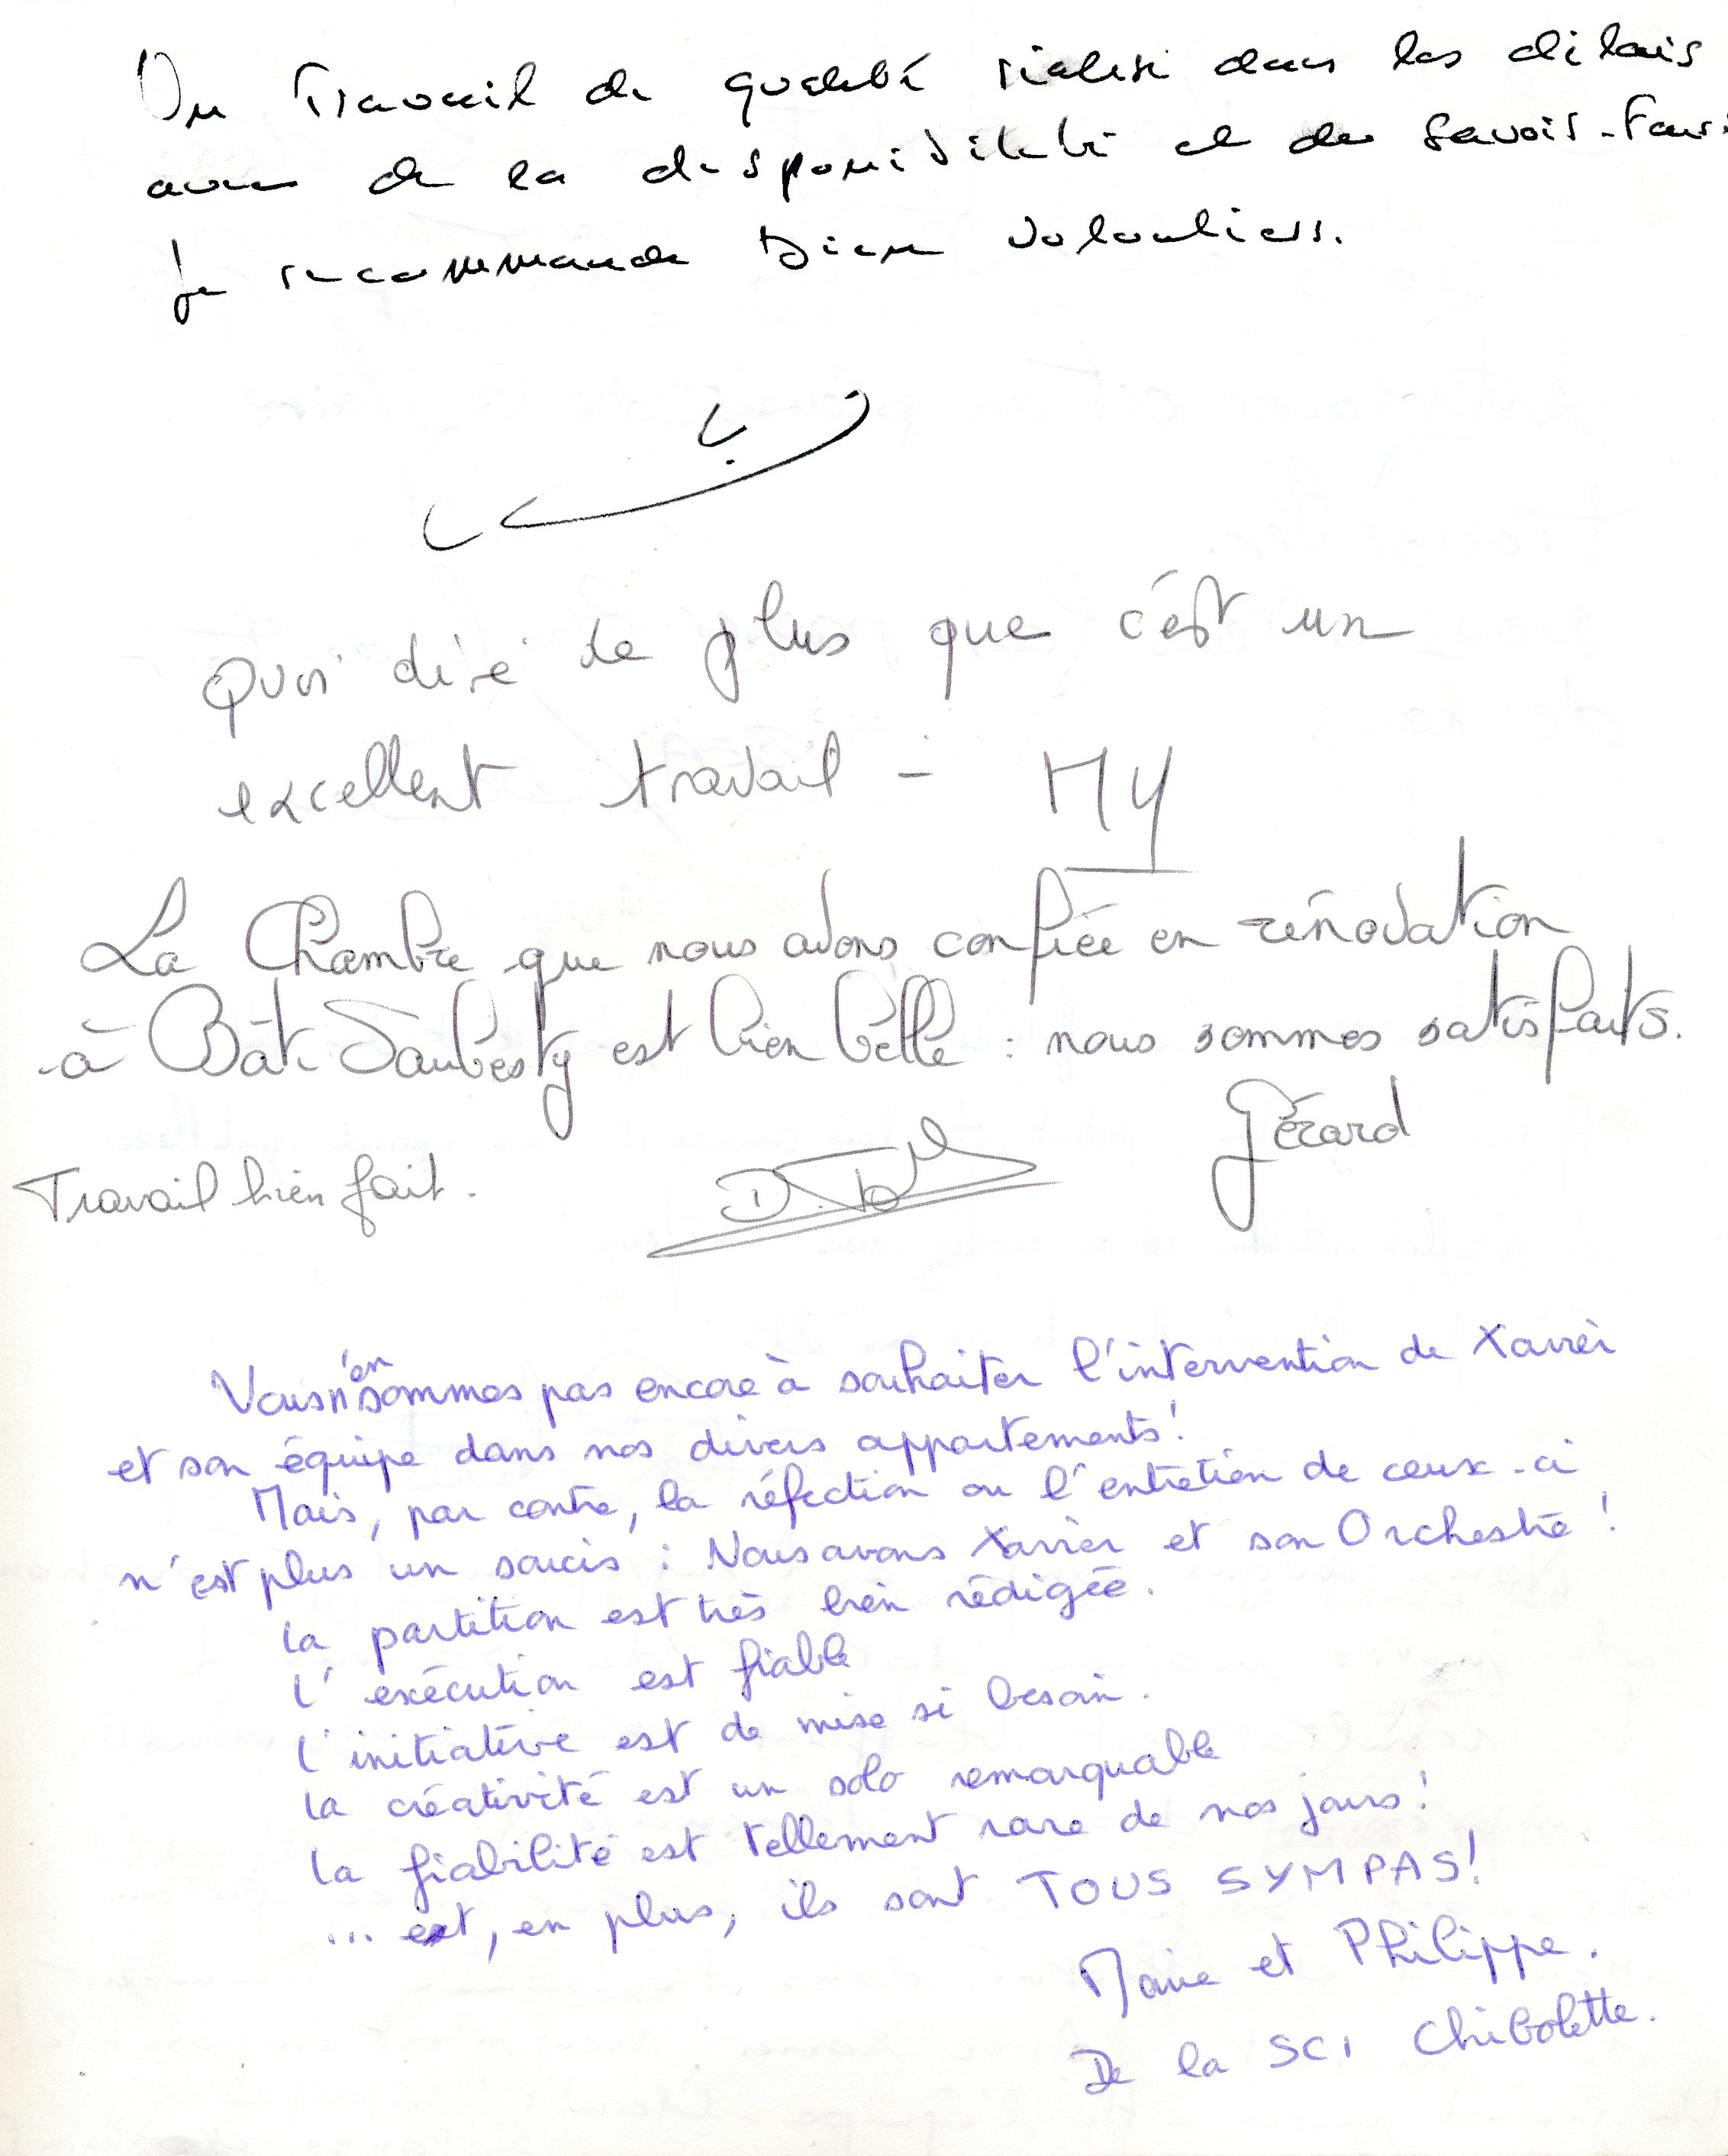 Un travail de qualité réalisé dans les délais
avec de la disponibilité et du savoir-fair
Je recommande bien volontiers.
Quoi dire de plus que c'est un
excellent travail - MY
La Chambre que nous avons confiée en rénovation
à Bâti Saubesty est bien belle : nous sommes satisfaits.
Gérard
Travail bien fait.
Nous n'en sommes pas encore à souhaiter l'intervention de Xavier
et son équipe dans nos divers appartements!
Mais, par contre, la réfection ou l'entretien de ceux-ci
n'est plus un soucis : Nous avons Xavier et son Orchestre !
la partition est très bien rédigée.
l'exécution est fiable
l'initiative est de mise si besoin.
la créativité est un solo remarquable
la fiabilité est tellement rare de nos jours!
... et, en plus, ils sont TOUS SYMPAS!
Marie et Philippe.
De la SCI Chibolette.